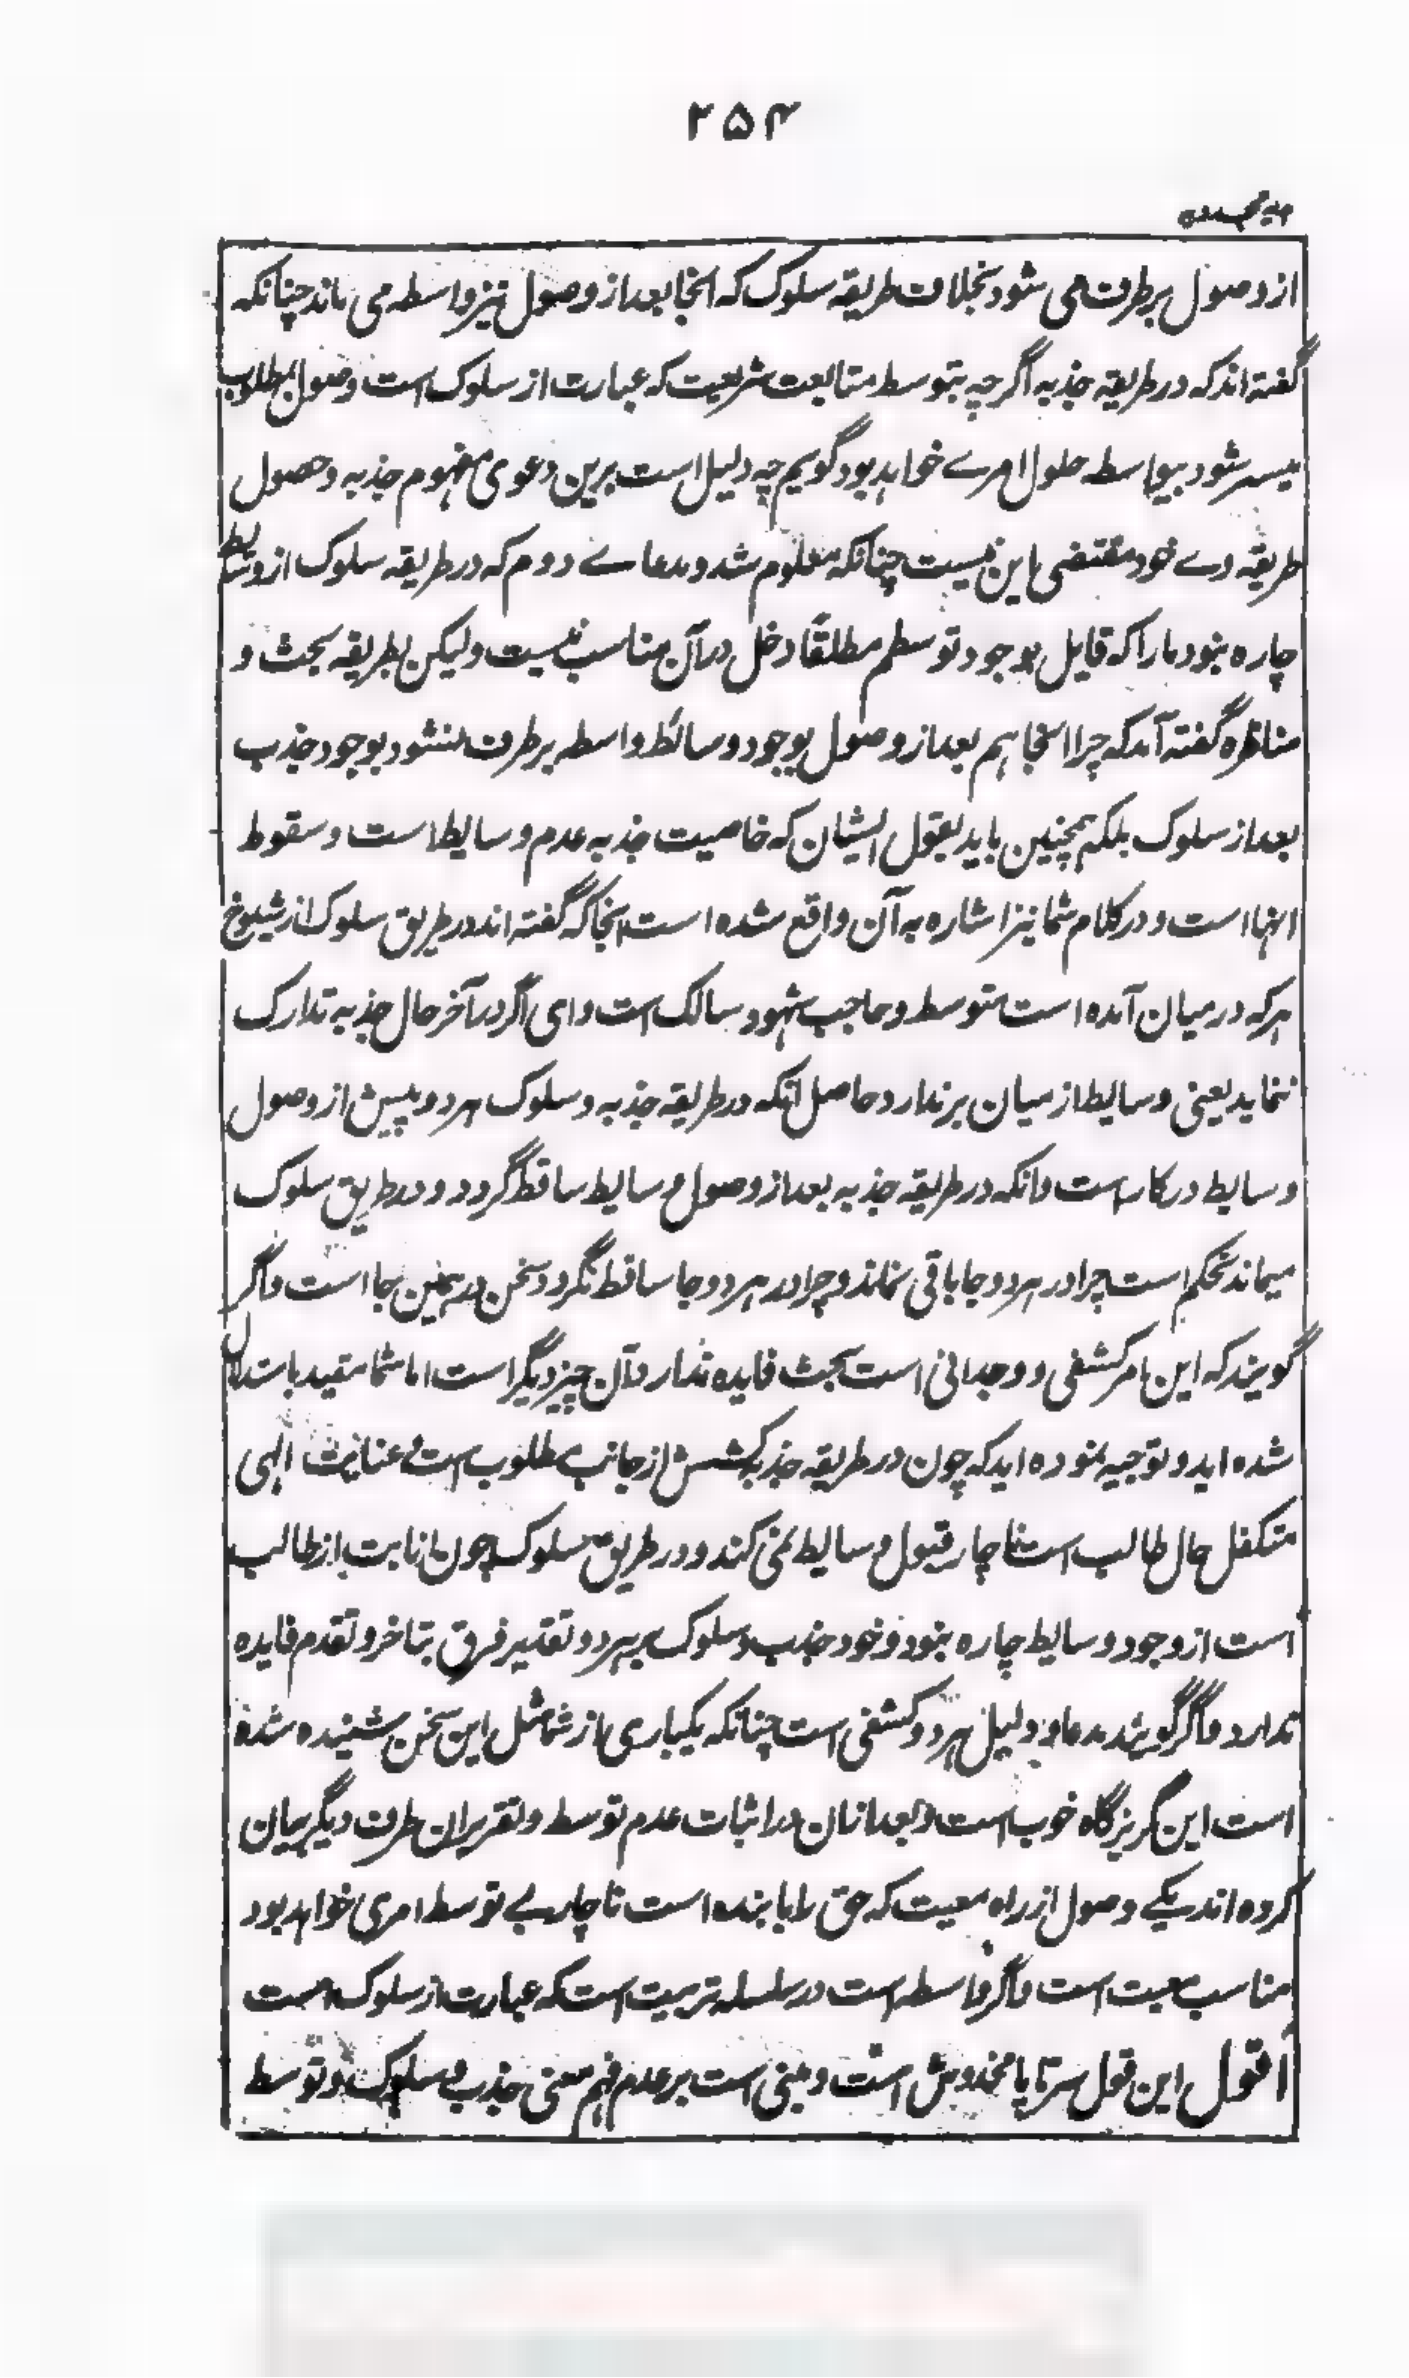 ۲۵۴
ہدیہ مجددیہ
از وصول برطرف می شود بخلاف طریقہ سلوک کہ انجا بعد از وصول نیز واسطہ می ماند چنانکہ
گفتہ اند کہ در طریقہ جذبہ اگرچہ بتوسط متابعت شریعت کہ عبارت از سلوک است وصول بمطلوب
میسر شود بیواسطہ حلول امرے خواہد بود گویم چہ دلیل است برین دعوی مفہوم جذبہ و حصول
طریقہ وے خود مقتضی این نیست چنانکہ معلوم شد و مدعاے دوم کہ در طریقہ سلوک از وسایط
چارہ نبود ما را کہ قایل بوجود توسطم مطلقاً دخل در آن مناسب نیست ولیکن بطریقہ بحث و
مناظرہ گفتہ آمد کہ چرا اینجا ہم بعد از وصول بوجود وسائط واسطہ برطرف نشود بوجود جذب
بعد از سلوک بلکہ ہمچنین باید بقول ایشان کہ خاصیت جذبہ عدم وسایط است و سقوط
انہا است و در کلام شما نیز اشارہ بہ آن واقع شدہ است انجا کہ گفتہ اند در طریق سلوک از شیوخ
ہر کہ در میان آمدہ است متوسط و حاجب شہود سالک است وای اگر در آخر حال جذبہ تدارک
ننماید یعنی وسایط از میان برندارد حاصل انکہ در طریقہ جذبہ و سلوک ہر دو پیش از وصول
وسایط در کار است و انکہ در طریقہ جذبہ بعد از وصول وسایط ساقط گردد و در طریق سلوک
میماند تحکم است چرا در ہر دو جا باقی نماند و چرا در ہر دو جا ساقط نگردد سخن در ہمین جا است و اگر
گویند کہ این امر کشفی و وجدانی است بحث فایدہ ندارد و آن چیز دیگر است اما شما مقید باستدلال
شدہ اید و توجیہ نمودہ اید کہ چون در طریقہ جذبہ کشش از جانب مطلوب است و عنایت الہی
متکفل حال طالب است ناچار قبول وسایط نمی کند و در طریق سلوک چون انابت از طالب
است از وجود وسایط چارہ نبود و خود جذب و سلوک بہر دو تقدیر فرق بتاخر و تقدم فایدہ
ندارد و اگر گویند مدعا و دلیل ہر دو کشفی است چنانکہ یکباری از شما مثل این سخن شنیدہ شدہ
است این گریزگاہ خوب است و بعد ازان در اثبات عدم توسط و تقریر ان طرف دیگر بیان
کردہ اند یکے وصول از راہ معیت کہ حق را با بندہ است ناچار بے توسط امری خواہد بود
مناسب معیت است و اگر واسطہ است در سلسلہ تربیت است کہ عبارت از سلوک است
اقول این قول سر تا پا مخدوش است و مبنی است بر عدم فہم معنی جذب و سلوک و توسط